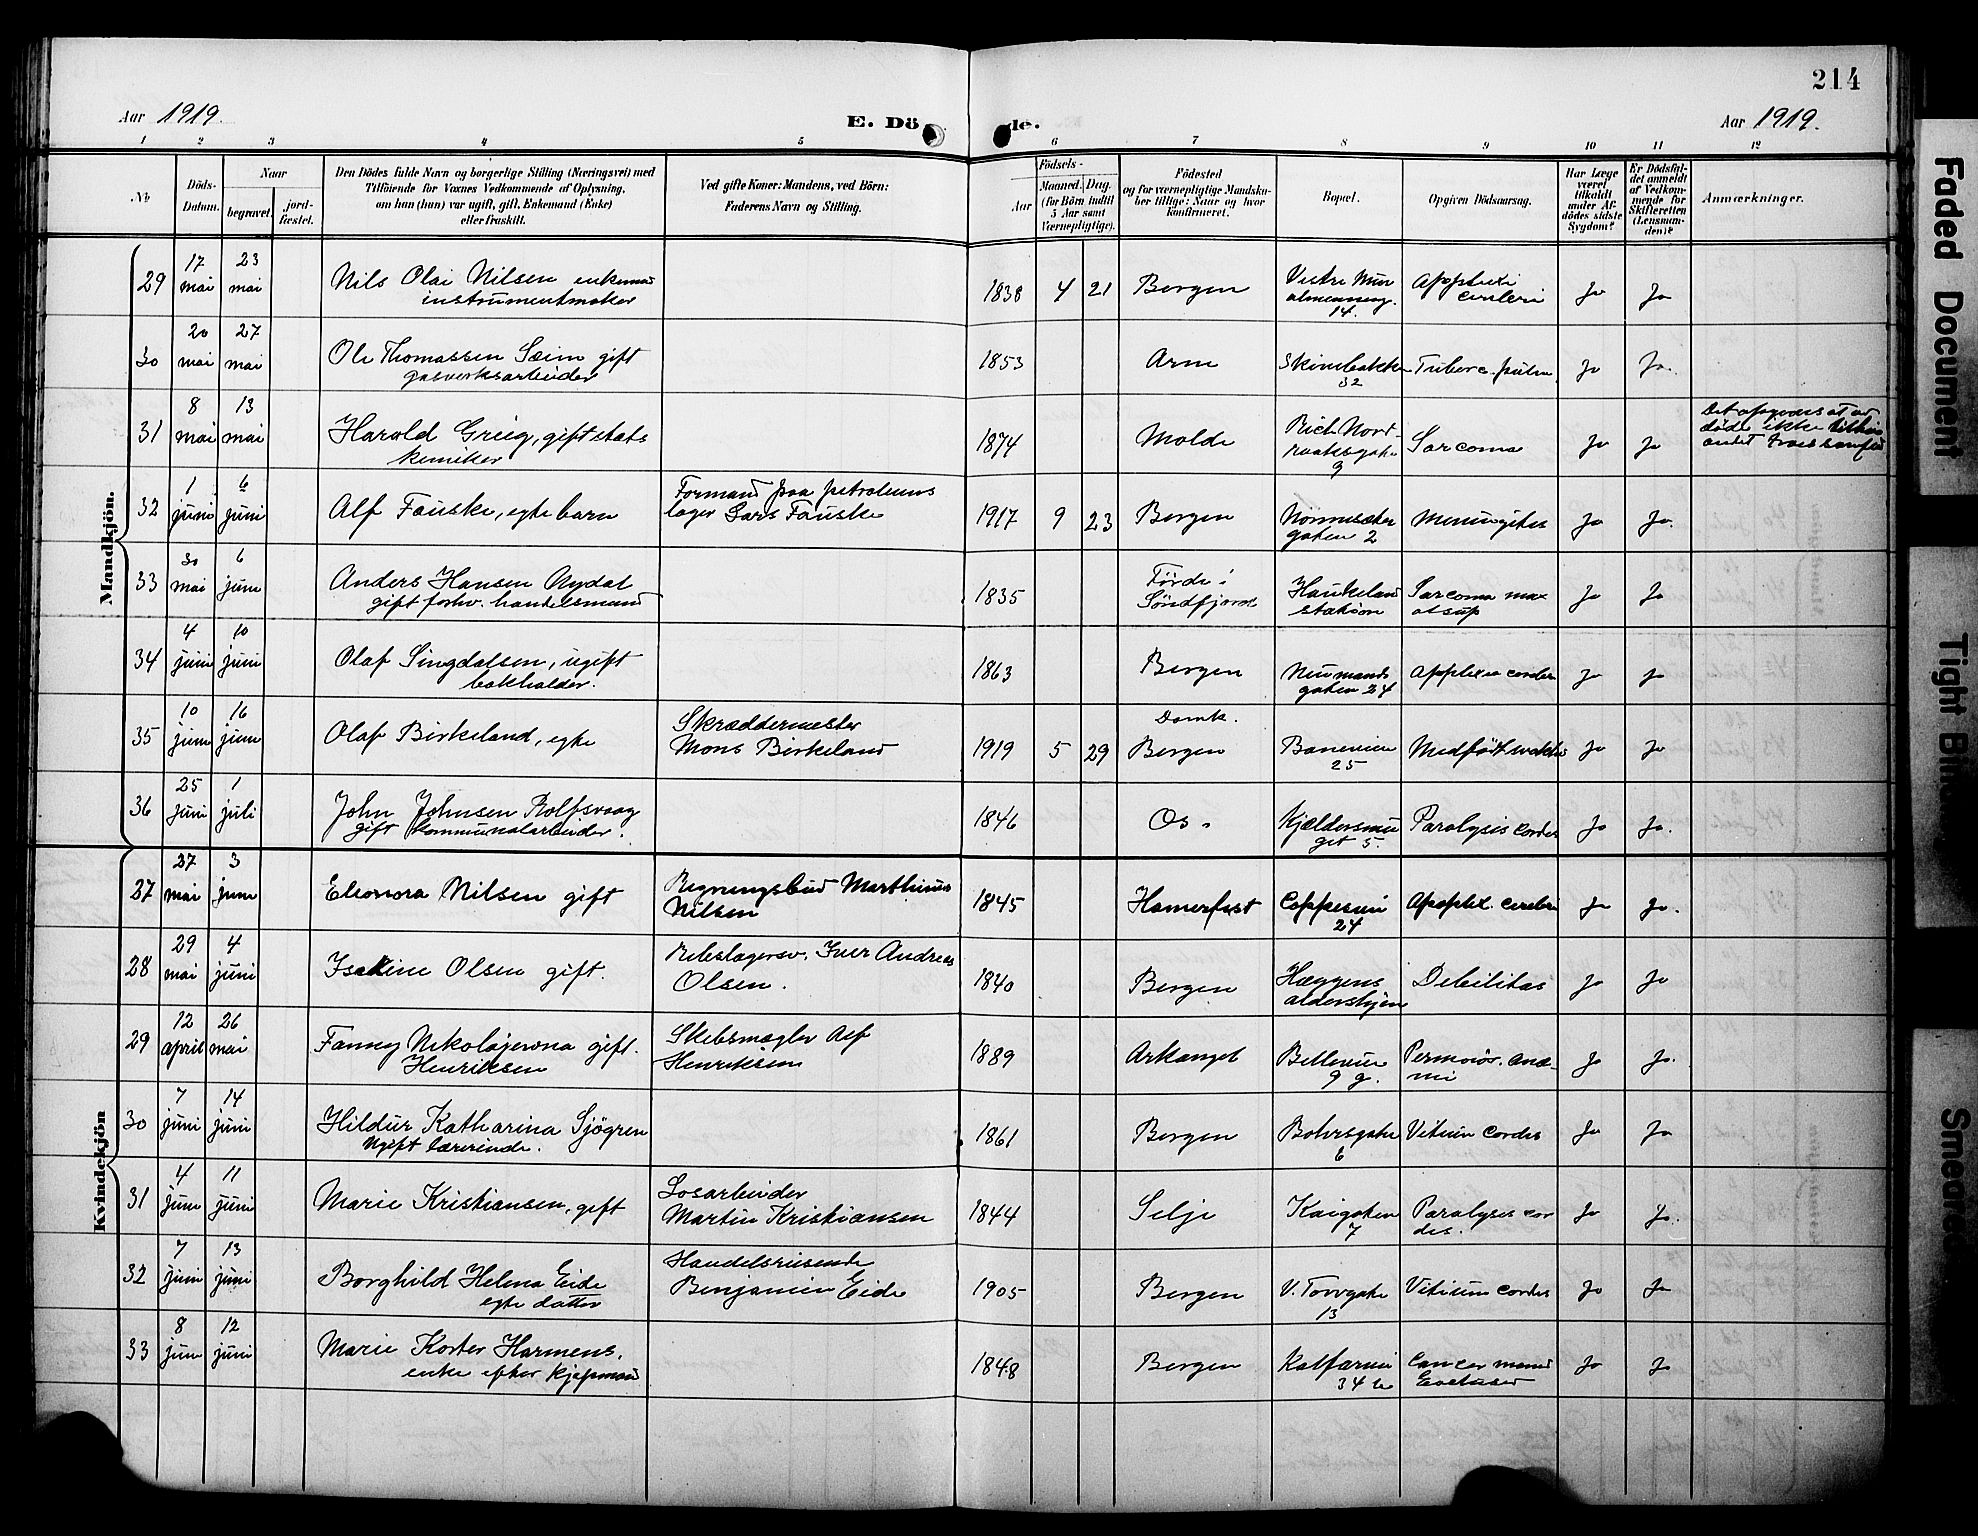 214
Aar 1919.
E. Dö
de.
Aar 1919.
1 2 3 4 5 6 7 8 9 10 11 12
No
Döds-
Datum.
Naar
begravet.
jord-
fæstet.
Den Dödes fulde Navn og borgerlige Stilling (Næringsvei) med
Tilföiende for Voxnes Vedkommende af Oplysning,
om han (hun) var ugift, gift, Enkemand (Enke)
eller fraskilt.
Ved gifte Koner: Mandens, ved Börn:
Faderens Navn og Stilling.
Födsels-
Aar
Maaned. Dag.
(for Börn indtil
5 Aar samt
Værnepligtige).
Födested
og for værnepligtige Mandska-
ber tillige: Naar og hvor
konfirmeret.
Bopæl.
Opgiven Dödsaarsag.
Har Læge
været
tilkaldt
under Af-
dödes sidste
Sygdom?
Er Dödsfal-
det anmeldt
af Vedkom-
mende for
Skifteretten
(Lensman-
den)?
Anmærkninger.
Mandkjön.
29 17 mai 23 mai Nils Olai Nilsen enkemand
instrumentmaker
1838 4 21 Bergen Vestre Mur
almenning.
14.
Apoplexi
cerebri
Ja Ja
30 20 mai 27 mai Ole Thomassen Sæim gift
gasverksarbeider
1853 Arne Skivebakken
32
Tuberc. pulm Ja Ja.
31 8 mai 13 mai Harald Greig, gift stats
kemiker
1874 Molde Rich. Nord-
raaksgate
9
Sarcoma Ja Ja
32 1 juni 6 juni Alf Fauske, egte barn
Formand paa petroleums
lager Lars Fauske
1917 9 23 Bergen Nonnesæter
gaten 2
Meningitis Ja Ja.
33 30 mai 6 juni Anders Hansen Nydal
gift forhv. handelsmand
1835 Førde i
Søndfjord
Haukeland
station
Sarcoma max
Ja Ja
34 4 juni 10 juni Olaf Singdalsen, ugift
bokholder.
1863 Bergen Neumands
gaten 24
Apoplexia cerebri Ja Ja
35 10 juni 16 juni Olaf Birkeland, egte
Skræddermester
Mons Birkeland
1919 5 29 Domk.
Bergen
Baneveien
25
Medfødt svakhet Ja Ja
36 25 juni 1 juli John Johnsen Rolfsvaag
gift kommunalarbeider.
1846 Os. Kjældersmu
get 5.
Paralysis cordis Ja Ja.
Kvindekjön
27 27 mai 3 juni Eleonora Nilsen gift
Regningsbud Marthinus
Nilsen
1845 Hamerfest
24
Apoplex. cerebri Ja Ja.
28 29 mai 4 juni Isakine Olsen gift.
Rebslagersv. Iver Andreas
Olsen.
1840 Bergen Hæggens
aldershjem
Debilitas Ja Ja
29 12 april 26 mai Fanny Nikolajewna gift.
Henriksen
Skibsmægler Alf
Henriksen
1889 Arkangel Bellevue
9 g.
Perniciøs. anæ-
mi
Ja Ja.
30 7 juni 14 juni Hildur Katharina Sjögren
Ugift lærerinde.
1861 Bergen Bohrsgate
6
Vitium cordis Ja Ja
31 4 juni 11 juni Marie Kristiansen, gift
Losarbeider
Martin Kristiansen
1844 Selje Kaigaten
7
Paralysis cor
dis.
Ja Ja.
32 7 juni 13 juni Borghild Helena Eide
egte datter
Handelsreisende
Benjamin Eide
1905 Bergen V. Torvgate
13
Vitium cordis Ja Ja
33 8 juni 12 juni Marie Korter Harmens,
enke efter kjøpmand
1848 Bergen Kalfarvei
34 b
Cancer
Ja Ja
Faded Document
Tight Bin
Sneared